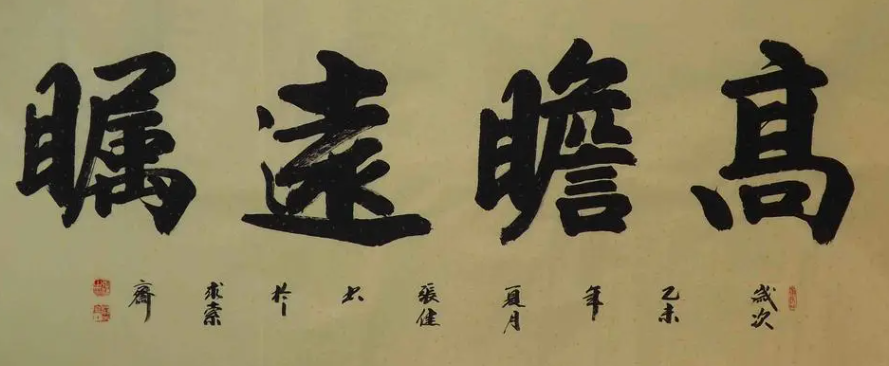 高瞻遠瞩
歲次乙未年夏月張健书於求索齋